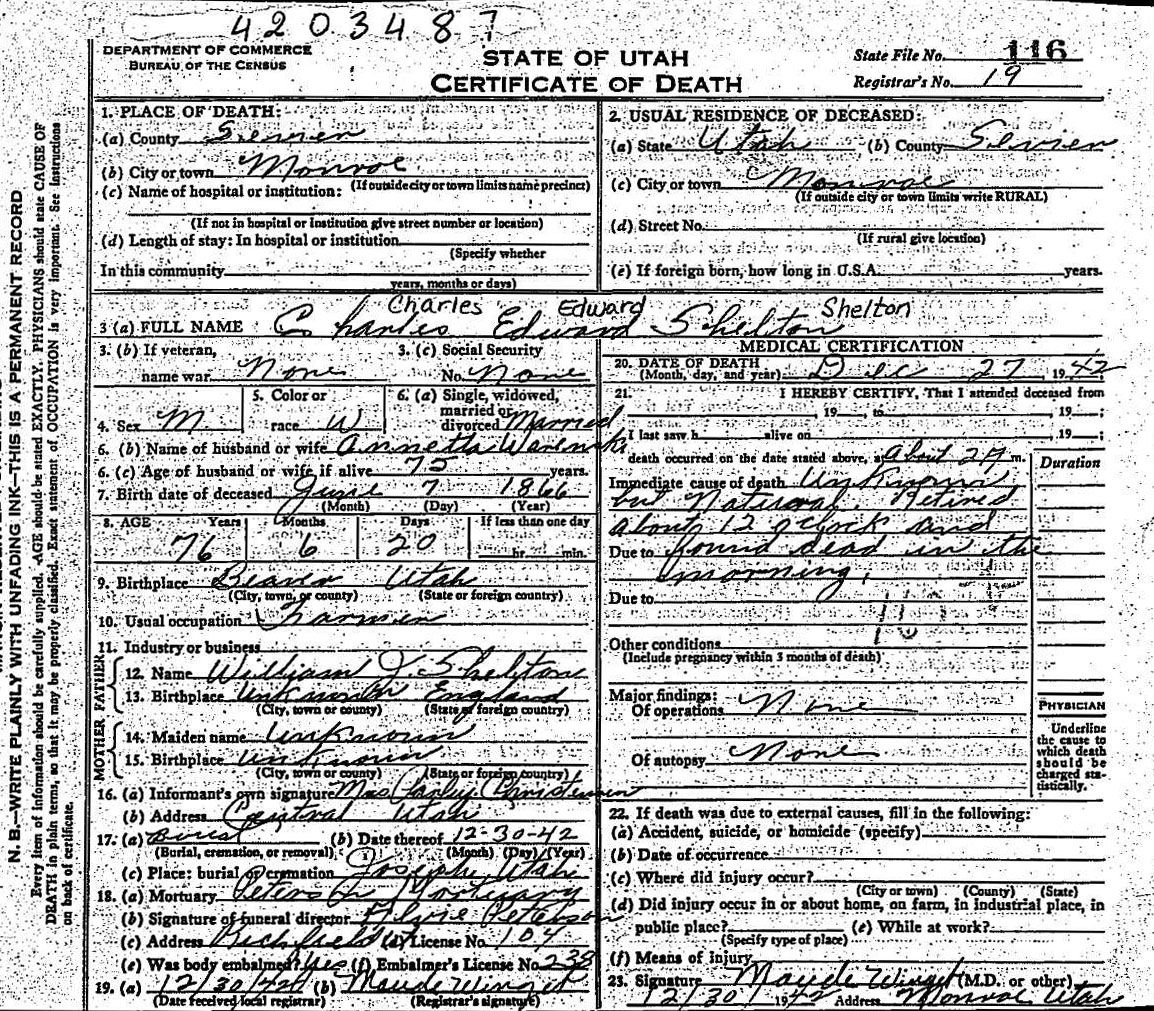 4203487
DEPARTMENT OF COMMERCE
BUREAU OF THE CENSUS
STATE OF UTAH
CERTIFICATE OF DEATH
State File No. 116
Registrar's No. 19
N. B.—WRITE PLAINLY WITH UNFADING INK—THIS IS A PERMANENT RECORD
Every item of information should be carefully supplied. AGE should be stated EXACTLY. PHYSICIANS should state CAUSE OF
DEATH in plain terms, so that it may be properly classified. Exact statement of OCCUPATION is very important. See Instructions
on back of certificate.
1. PLACE OF DEATH:
(a) County Sevier
(b) City or town Monroe
(If outside city or town limits name precinct)
(c) Name of hospital or institution:
(If not in hospital or institution give street number or location)
(d) Length of stay: In hospital or institution
(Specify whether
In this community
years, months or days)
2. USUAL RESIDENCE OF DECEASED:
(a) State Utah (b) County Sevier
(c) City or town Monroe
(If outside city or town limits write RURAL)
(d) Street No.
(If rural give location)
(e) If foreign born, how long in U.S.A. years.
Charles Edward Shelton
3 (a) FULL NAME Charles Edward Shelton
3. (b) If veteran, name war None
3. (c) Social Security No. None
4. Sex M
5. Color or race W
6. (a) Single, widowed, married or divorced Married
6. (b) Name of husband or wife Annetta
6. (c) Age of husband or wife, if alive 75 years.
7. Birth date of deceased June 7 1866
(Month) (Day) (Year)
8. AGE Years Months Days If less than one day
76 6 20 hr. min.
9. Birthplace Beaver Utah
(City, town, or county) (State or foreign country)
10. Usual occupation Farmer
11. Industry or business
FATHER
12. Name William J. Shelton
13. Birthplace Unknown England
(City, town or county) (State of foreign country)
MOTHER
14. Maiden name Unknown
15. Birthplace Unknown
(City, town or county) (State or foreign country)
16. (a) Informant's own signature Mrs Parley Christensen
(b) Address Central Utah
17. (a) Burial (b) Date thereof 12-30-42
(Burial, cremation, or removal) (Month) (Day) (Year)
(c) Place: burial or cremation Joseph, Utah
18. (a) Mortuary Peterson Mortuary
(b) Signature of funeral director Peterson
(c) Address Richfield (d) License No. 104
(e) Was body embalmed? Yes (f) Embalmer's License No. 238
19. (a) 12/30/42 (b) Maude Winget
(Date received local registrar) (Registrar's signature)
MEDICAL CERTIFICATION
20. DATE OF DEATH
(Month, day, and year) Dec 27 1942
21. I HEREBY CERTIFY, That I attended deceased from
, 19 , to , 19 ;
I last saw h alive on , 19 ;
death occurred on the date stated above, at About 2 A m.
Duration
Immediate cause of death Unknown
but Natural. Retired
about 12 o'clock and
Due to found dead in the
morning.
Due to
Other conditions
(Include pregnancy within 3 months of death)
Major findings:
Of operations None
Of autopsy None
PHYSICIAN
Underline
the cause to
which death
should be
charged sta-
tistically.
22. If death was due to external causes, fill in the following:
(a) Accident, suicide, or homicide (specify)
(b) Date of occurrence
(c) Where did injury occur?
(City or town) (County) (State)
(d) Did injury occur in or about home, on farm, in industrial place, in
public place? (e) While at work?
(Specify type of place)
(f) Means of injury
23. Signature Maude Winget (M.D. or other)
12/30/1942 Address Monroe Utah